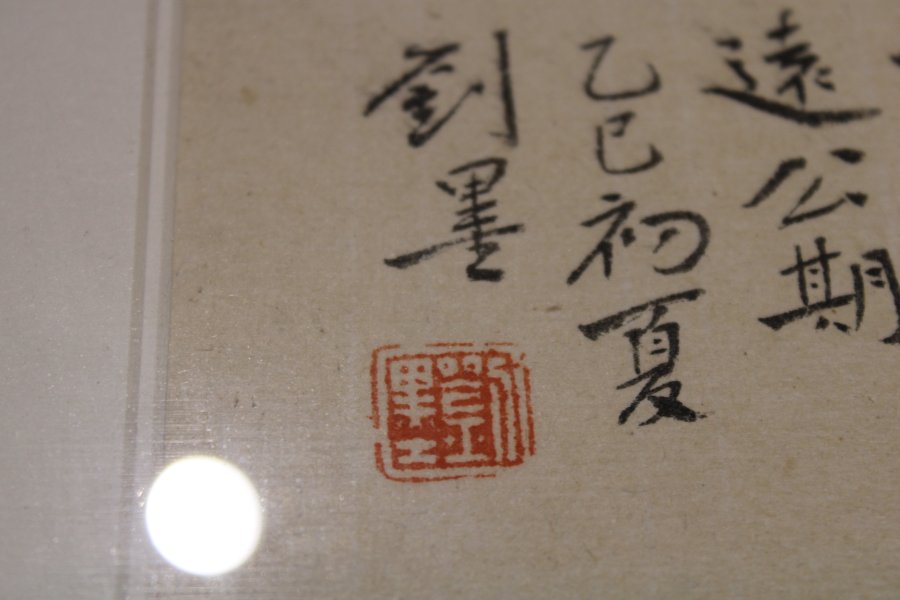 遠公期
乙巳初夏
劉墨
劉墨